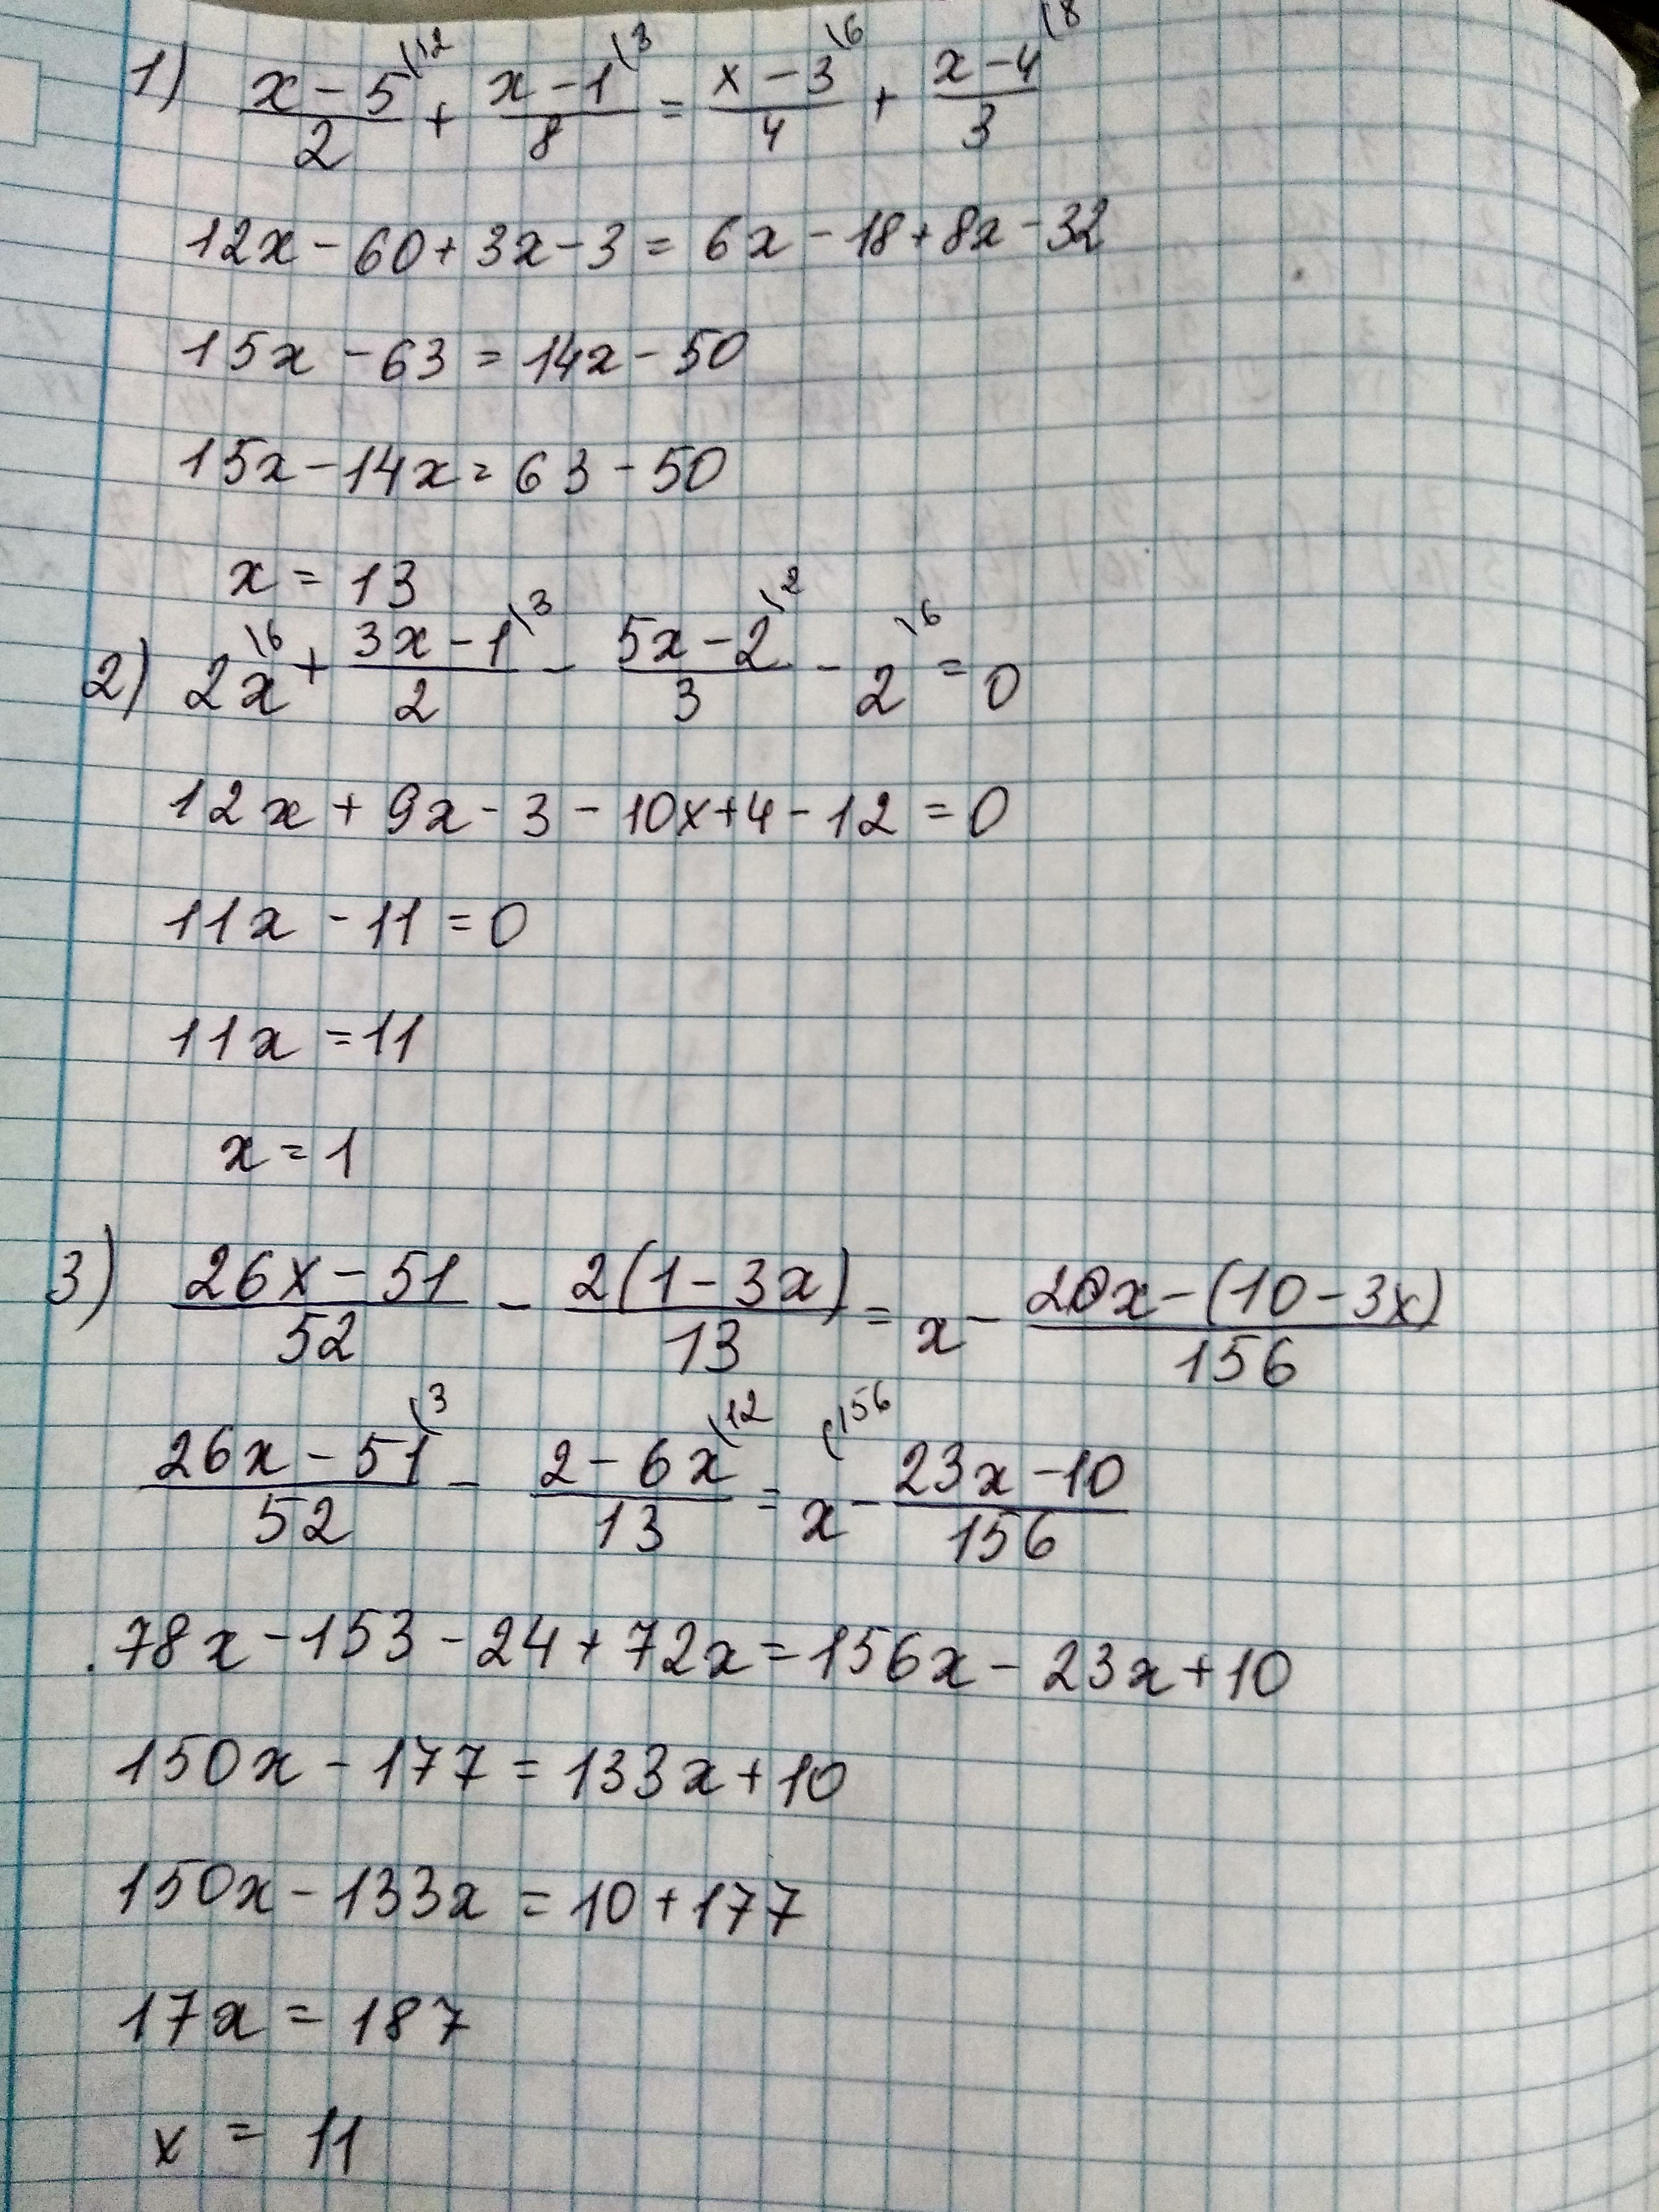 1) (x-5)/2 \12 + (x-1)/8 \3 = (x-3)/4 \6 + (x-4)/3 \8
12x - 60 + 3x - 3 = 6x - 18 + 8x - 32
15x - 63 = 14x - 50
15x - 14x = 63 - 50
x = 13
2) 2x \6 + (3x-1)/2 \3 - (5x-2)/3 \2 - 2 \6 = 0
12x + 9x - 3 - 10x + 4 - 12 = 0
11x - 11 = 0
11x = 11
x = 1
3) (26x-51)/52 - 2(1-3x)/13 = x - (20x-(10-3x))/156
(26x-51)/52 \3 - (2-6x)/13 \12 = x \156 - (23x-10)/156
78x - 153 - 24 + 72x = 156x - 23x + 10
150x - 177 = 133x + 10
150x - 133x = 10 + 177
17x = 187
x = 11